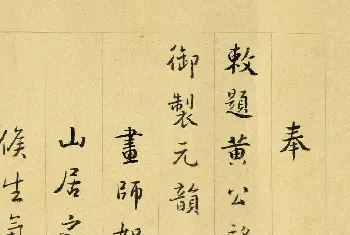 奉
敕題黃公
御製元韻
畫師
山居
候生